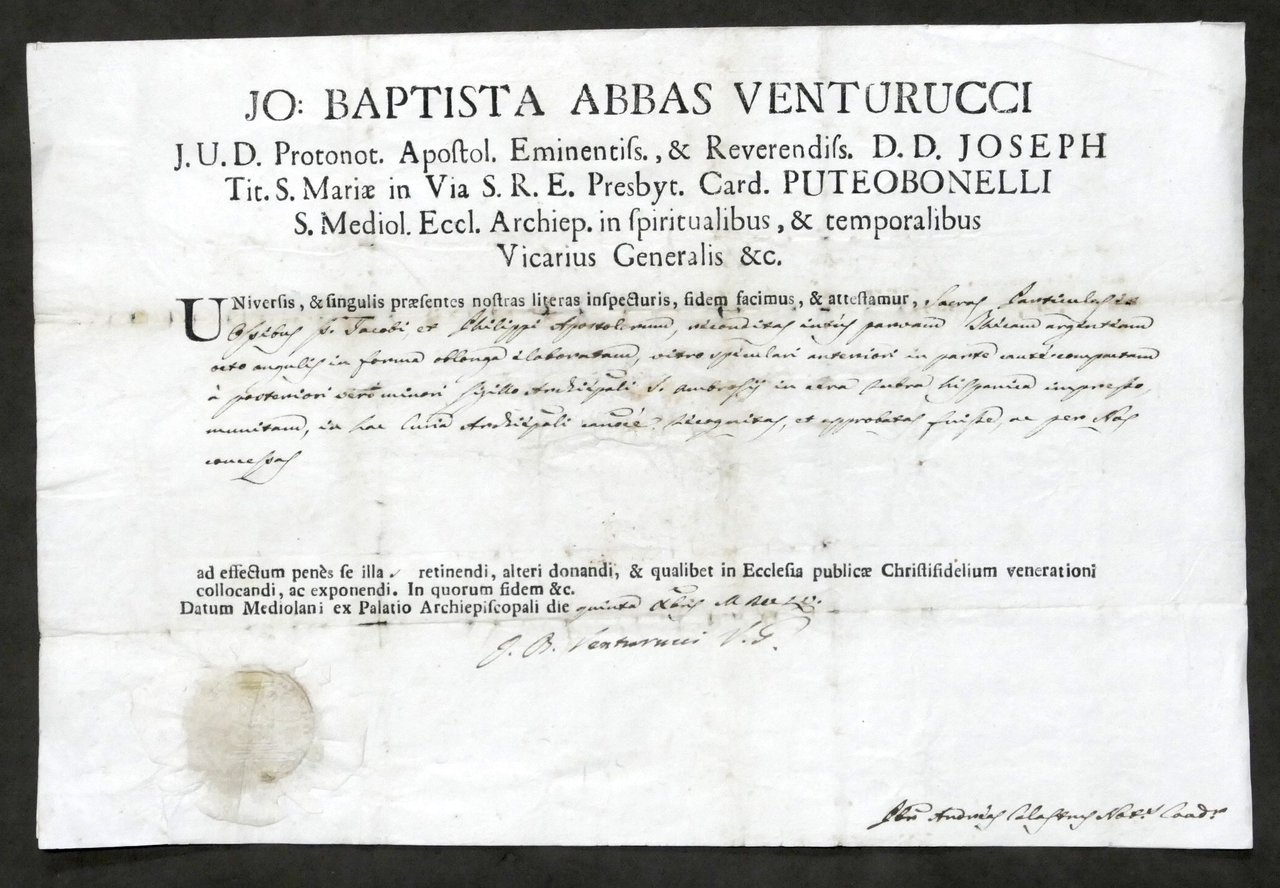 JO: BAPTISTA ABBAS VENTURUCCI
J. U. D. Protonot. Apoſtol. Eminentiſs., & Reverendiſs. D. D. JOSEPH
Tit. S. Mariæ in Via S. R. E. Presbyt. Card. PUTEOBONELLI
S. Mediol. Eccl. Archiep. in ſpiritualibus, & temporalibus
Vicarius Generalis &c.
UNiverſis, & ſingulis præſentes noſtras literas inſpecturis, fidem facimus, & atteſtamur, Sacras Particulas ex
Oſsibus S. Jacobi, et Philippi Apostolorum, reconditas intus parvam Thecam argenteam
octo angulis in forma oblonga elaboratam, vitro speculari anteriori in parte cautè compactam
à posteriori verò minori Sigillo Archiēpali S. Ambrosij in cera rubra hispanica impresso,
munitam, in hac Curia Archiēpali recognitas, et approbatas fuiſse, ac per Nos
conceſsas
ad effectum penès ſe illas retinendi, alteri donandi, & qualibet in Eccleſia publicæ Chriſtifidelium venerationi
collocandi, ac exponendi. In quorum fidem &c.
Datum Mediolani ex Palatio Archiepiſcopali die quinta Xbris
J. B. Venturucci V. G.
Andreas Not. Coad.